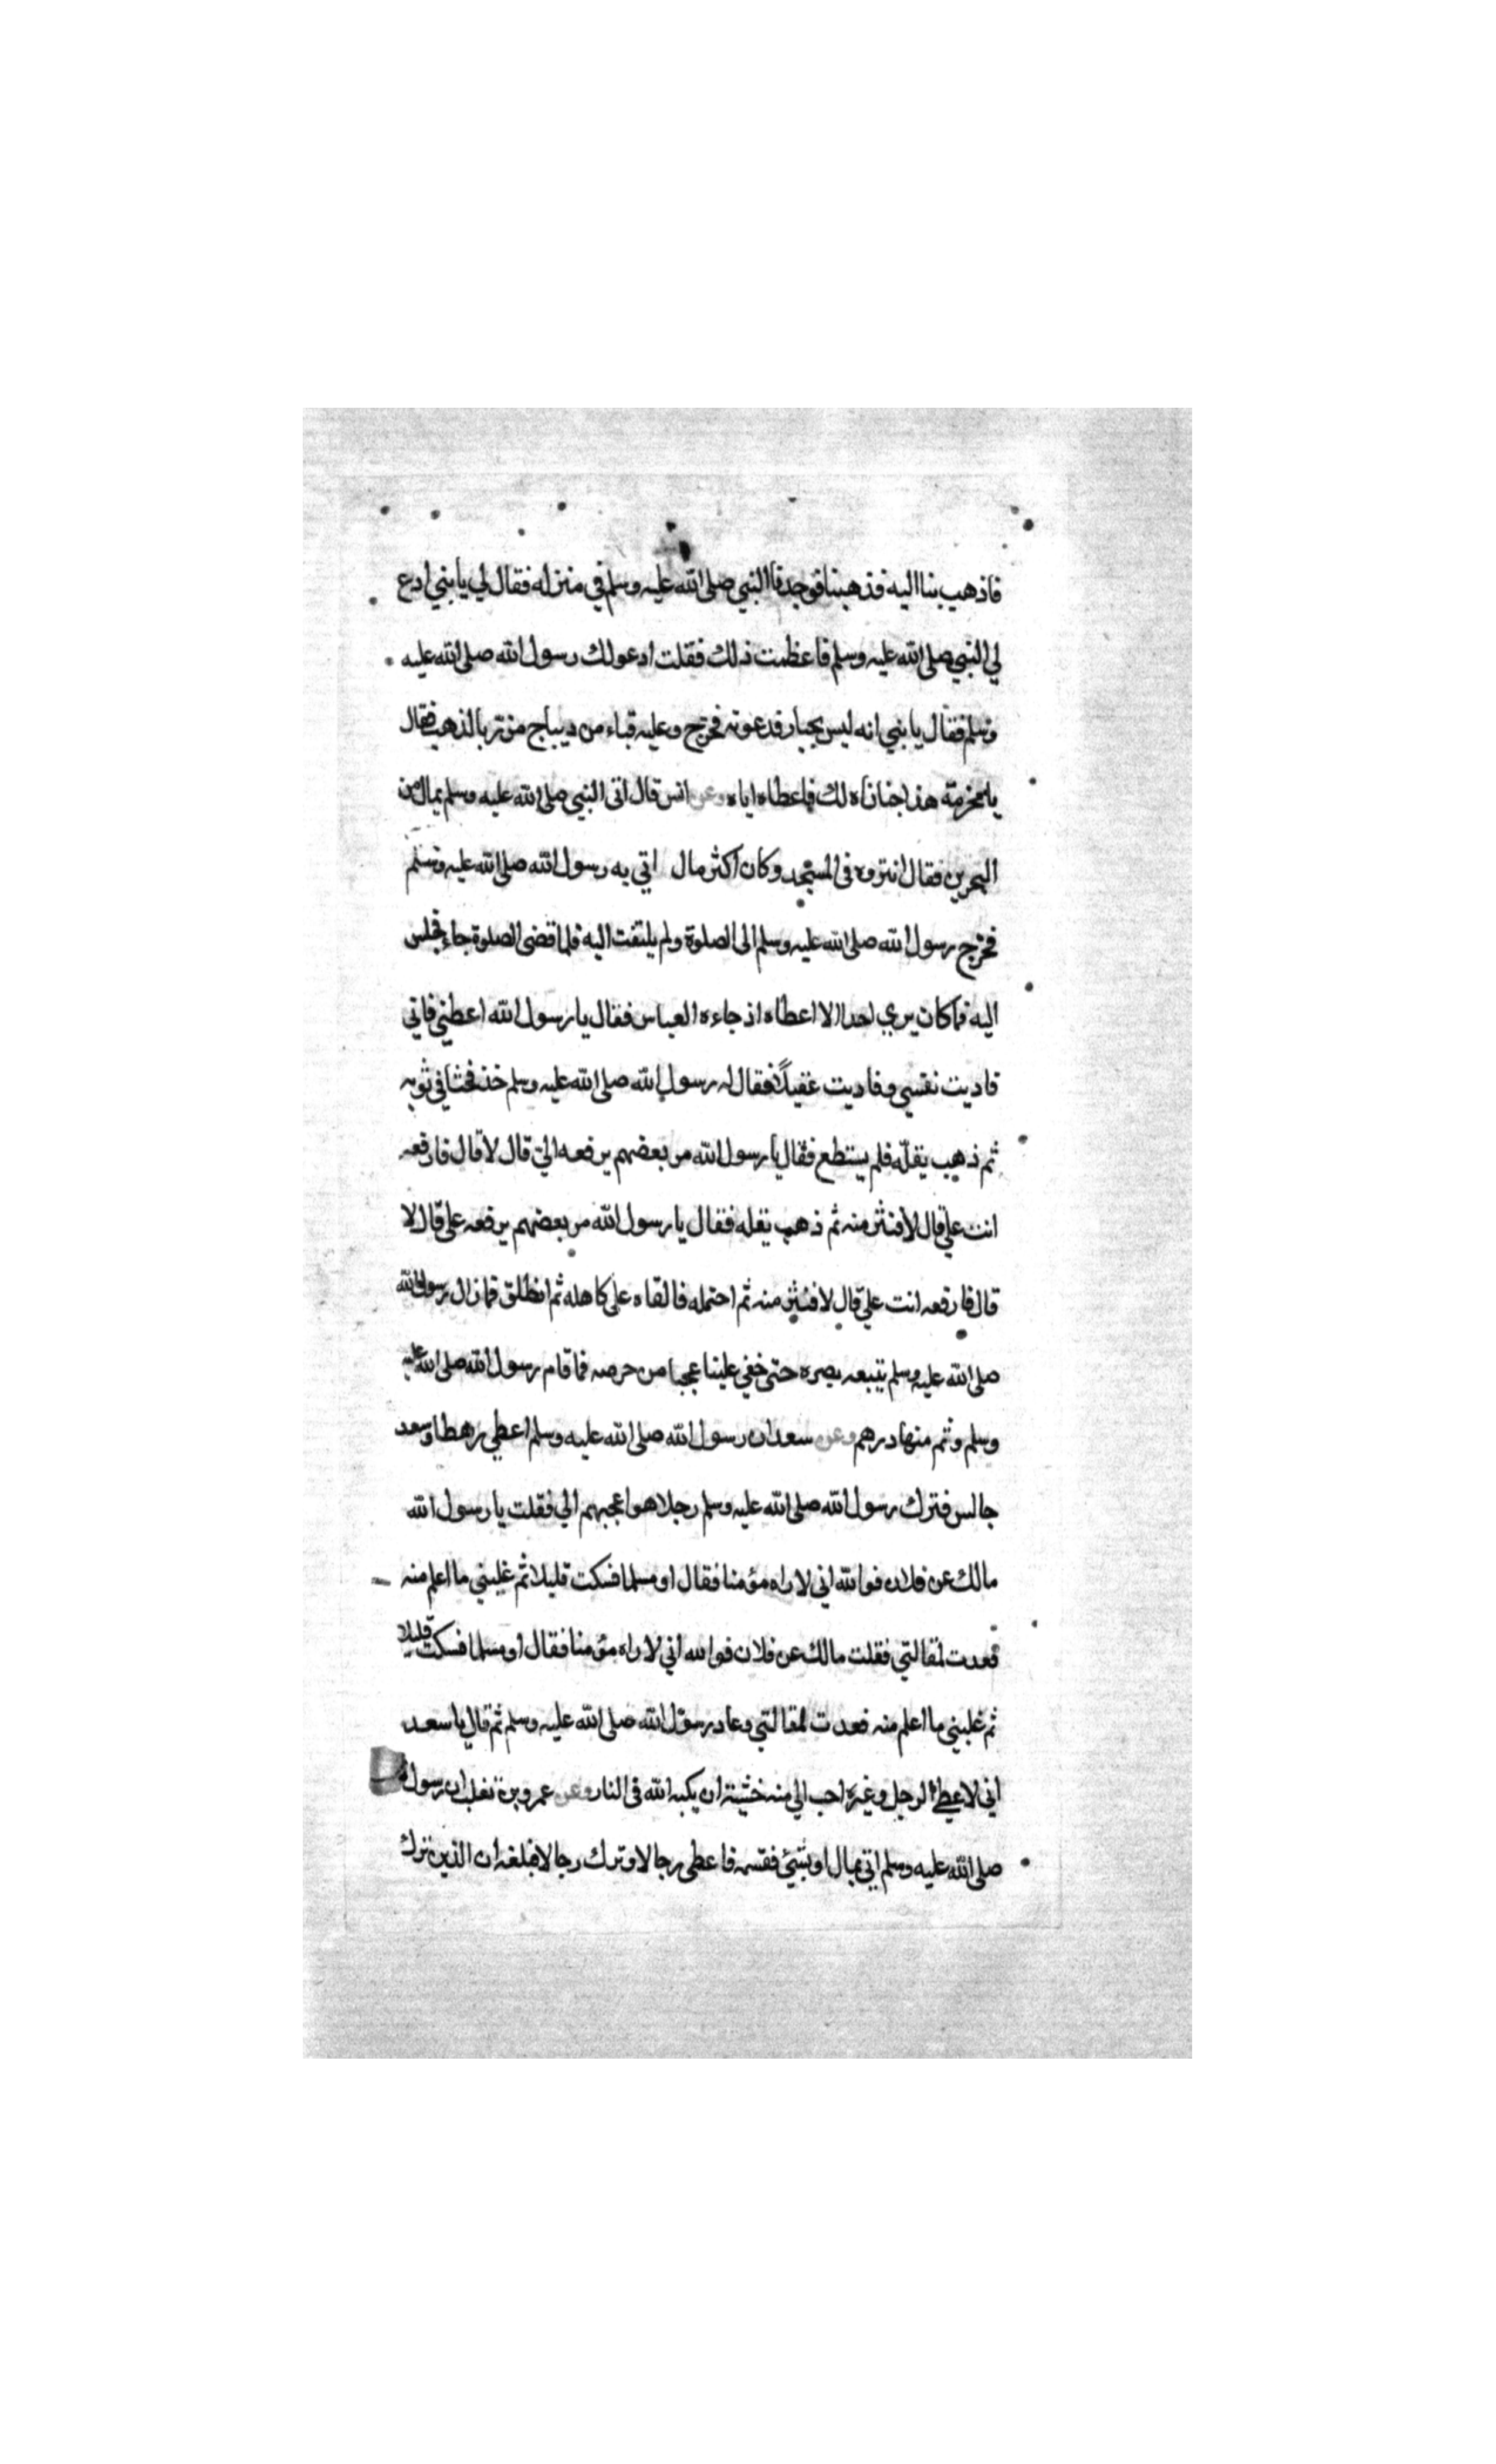 فاذهب بنا اليه فذهبنا فوجدنا النبي صلى الله عليه وسلم في منزله فقال لي يا بني ادع
لي النبي صلى الله عليه وسلم فاعظمت ذلك فقلت ادعو لك رسول الله صلى الله عليه
وسلم فقال يا بني انه ليس بجبار فدعوته فخرج وعليه قباء من ديباج مزرر بالذهب فقال
يا مخرمة هذا خبأناه لك فاعطاه اياه وعن انس قال اتى النبي صلى الله عليه وسلم بمال من
البحرين فقال انثروه في المسجد وكان اكثر مال اتي به رسول الله صلى الله عليه وسلم
فخرج رسول الله صلى الله عليه وسلم الى الصلوة ولم يلتفت اليه فلما قضى الصلوة جاء فجلس
اليه فما كان يرى احدا الا اعطاه اذ جاءه العباس فقال يا رسول الله اعطني فاني
فاديت نفسي وفاديت عقيلاً فقال له رسول الله صلى الله عليه وسلم خذ فحثا في ثوبه
ثم ذهب يقلّه فلم يستطع فقال يا رسول الله مر بعضهم يرفعه الي قال لا قال فارفعه
انت علي قال لا فنثر منه ثم ذهب يقله فقال يا رسول الله مر بعضهم يرفعه علي قال لا
قال فارفعه انت علي قال لا فنثر منه ثم احتمله فالقاه على كاهله ثم انطلق فما زال رسول الله
صلى الله عليه وسلم يتبعه بصره حتى خفي علينا عجبا من حرصه فما قام رسول الله صلى الله عليه
وسلم وثم منها درهم وعن سعد ان رسول الله صلى الله عليه وسلم اعطى رهطا وسعد
جالس فترك رسول الله صلى الله عليه وسلم رجلا هو اعجبهم الي فقلت يا رسول الله
مالك عن فلان فوالله اني لاراه مؤمنا فقال او مسلما فسكت قليلا ثم غلبني ما اعلم منه
فعدت لمقالتي فقلت مالك عن فلان فوالله اني لاراه مؤمنا فقال او مسلما فسكت قليلا
ثم غلبني ما اعلم منه فعدت لمقالتي وعاد رسول الله صلى الله عليه وسلم ثم قال يا سعد
اني لاعطي الرجل وغيره احب الي منه خشية ان يكبه الله في النار وعن عمرو بن تغلب ان رسول الله
صلى الله عليه وسلم اتي بمال او بشيء فقسمه فاعطى رجالا وترك رجالا فبلغه ان الذين ترك